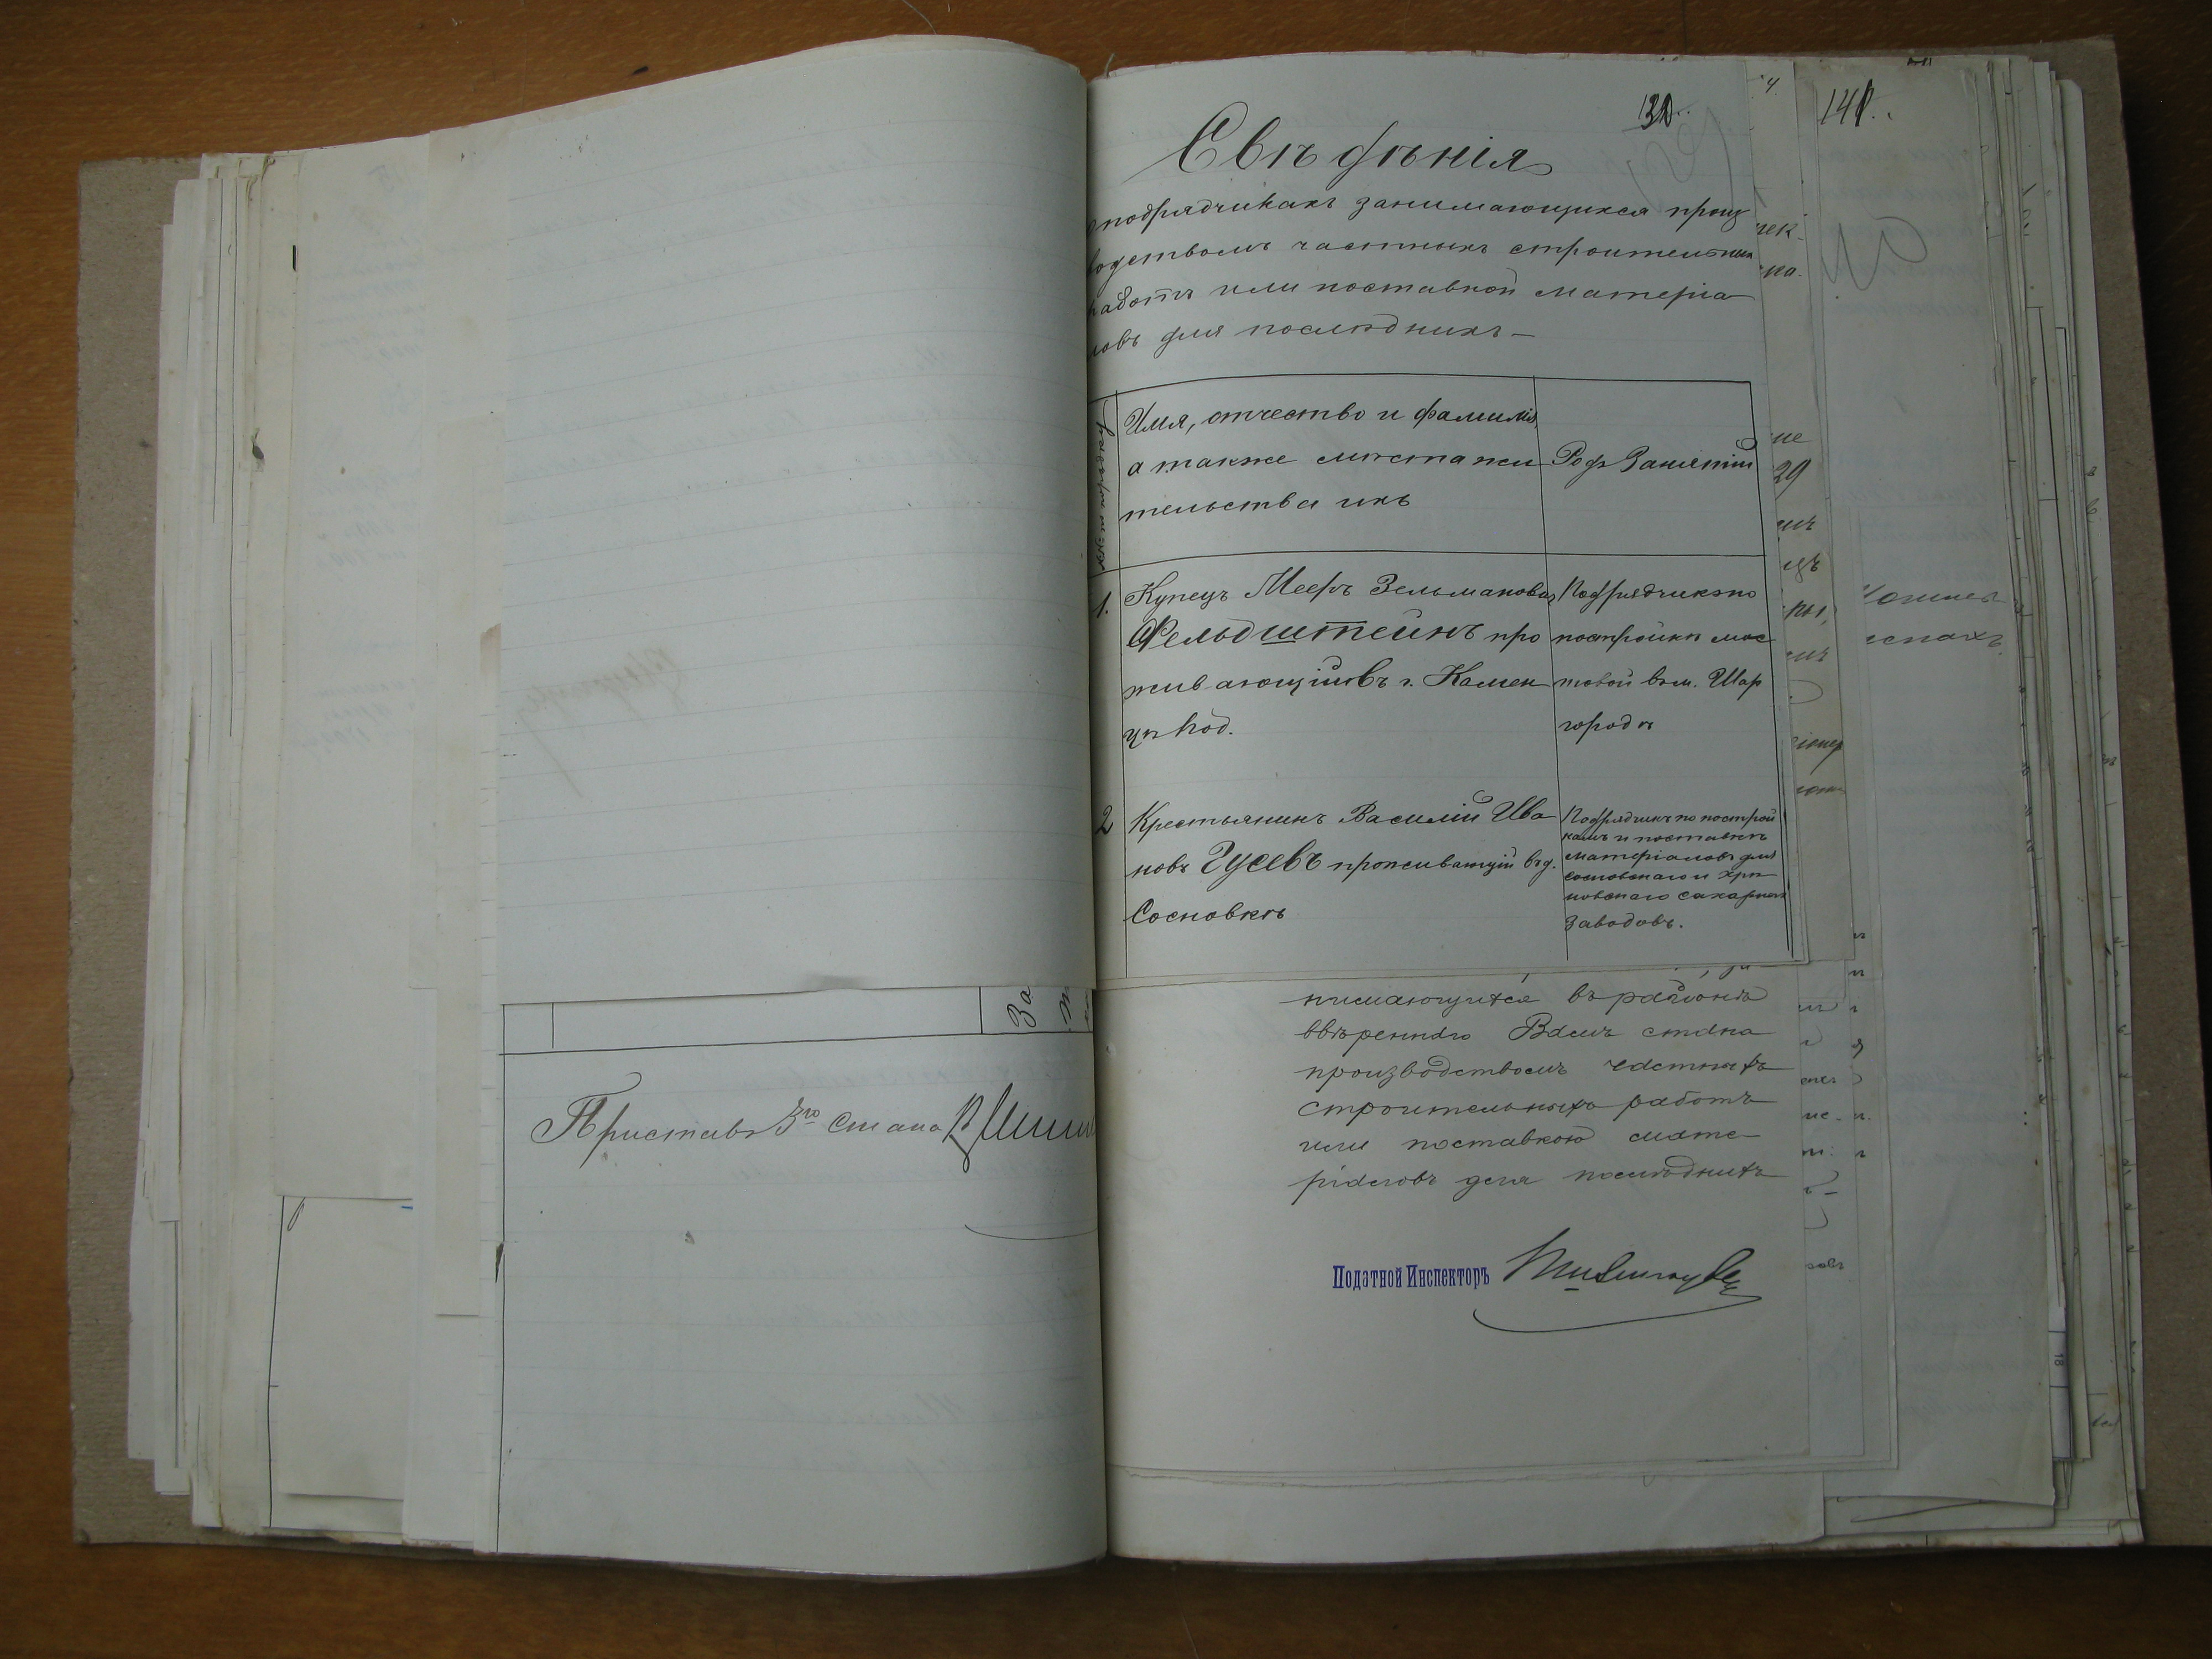 За
Приставъ 3го Стана
141.
Свѣдѣнія
о подрядчикахъ занимающихся произ
водствомъ частныхъ строительныхъ
работъ или поставкой матеріа
ловъ для послѣднихъ
Имя, отчество и фамилія,
а также мѣста жи
тельства ихъ
Родъ Занятій
1.
Купецъ Мееръ Зельмановичъ
Фельдштейнъ про
живающій въ г. Камен
цѣ Под.
Подрядчикъ по
постройкѣ мос
товой въ м. Шар
городѣ
2
Крестьянинъ Василій Ива
новъ Гусевъ проживающій въ д.
Сосновкѣ
Подрядчикъ по построй
камъ и поставкѣ
матеріаловъ для
Сосновскаго и
сахарныхъ
заводовъ.
нимающихся въ районѣ
ввѣреннаго Вамъ стана
производствомъ частныхъ
строительныхъ работъ
или поставкою мате-
ріаловъ для послѣднихъ
Податной Инспекторъ
29
18